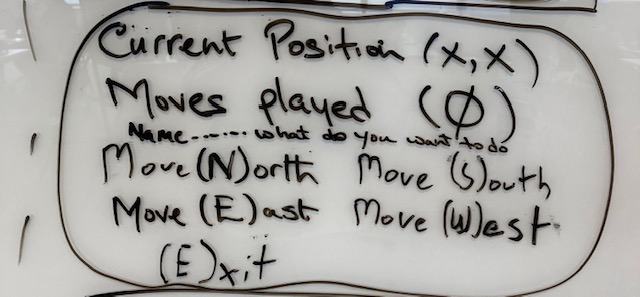 Current Position (x,x)
Moves played (Ø)
Name...... what do you want to do
Move (N)orth Move (S)outh
Move (E)ast Move (W)est
(E)xit